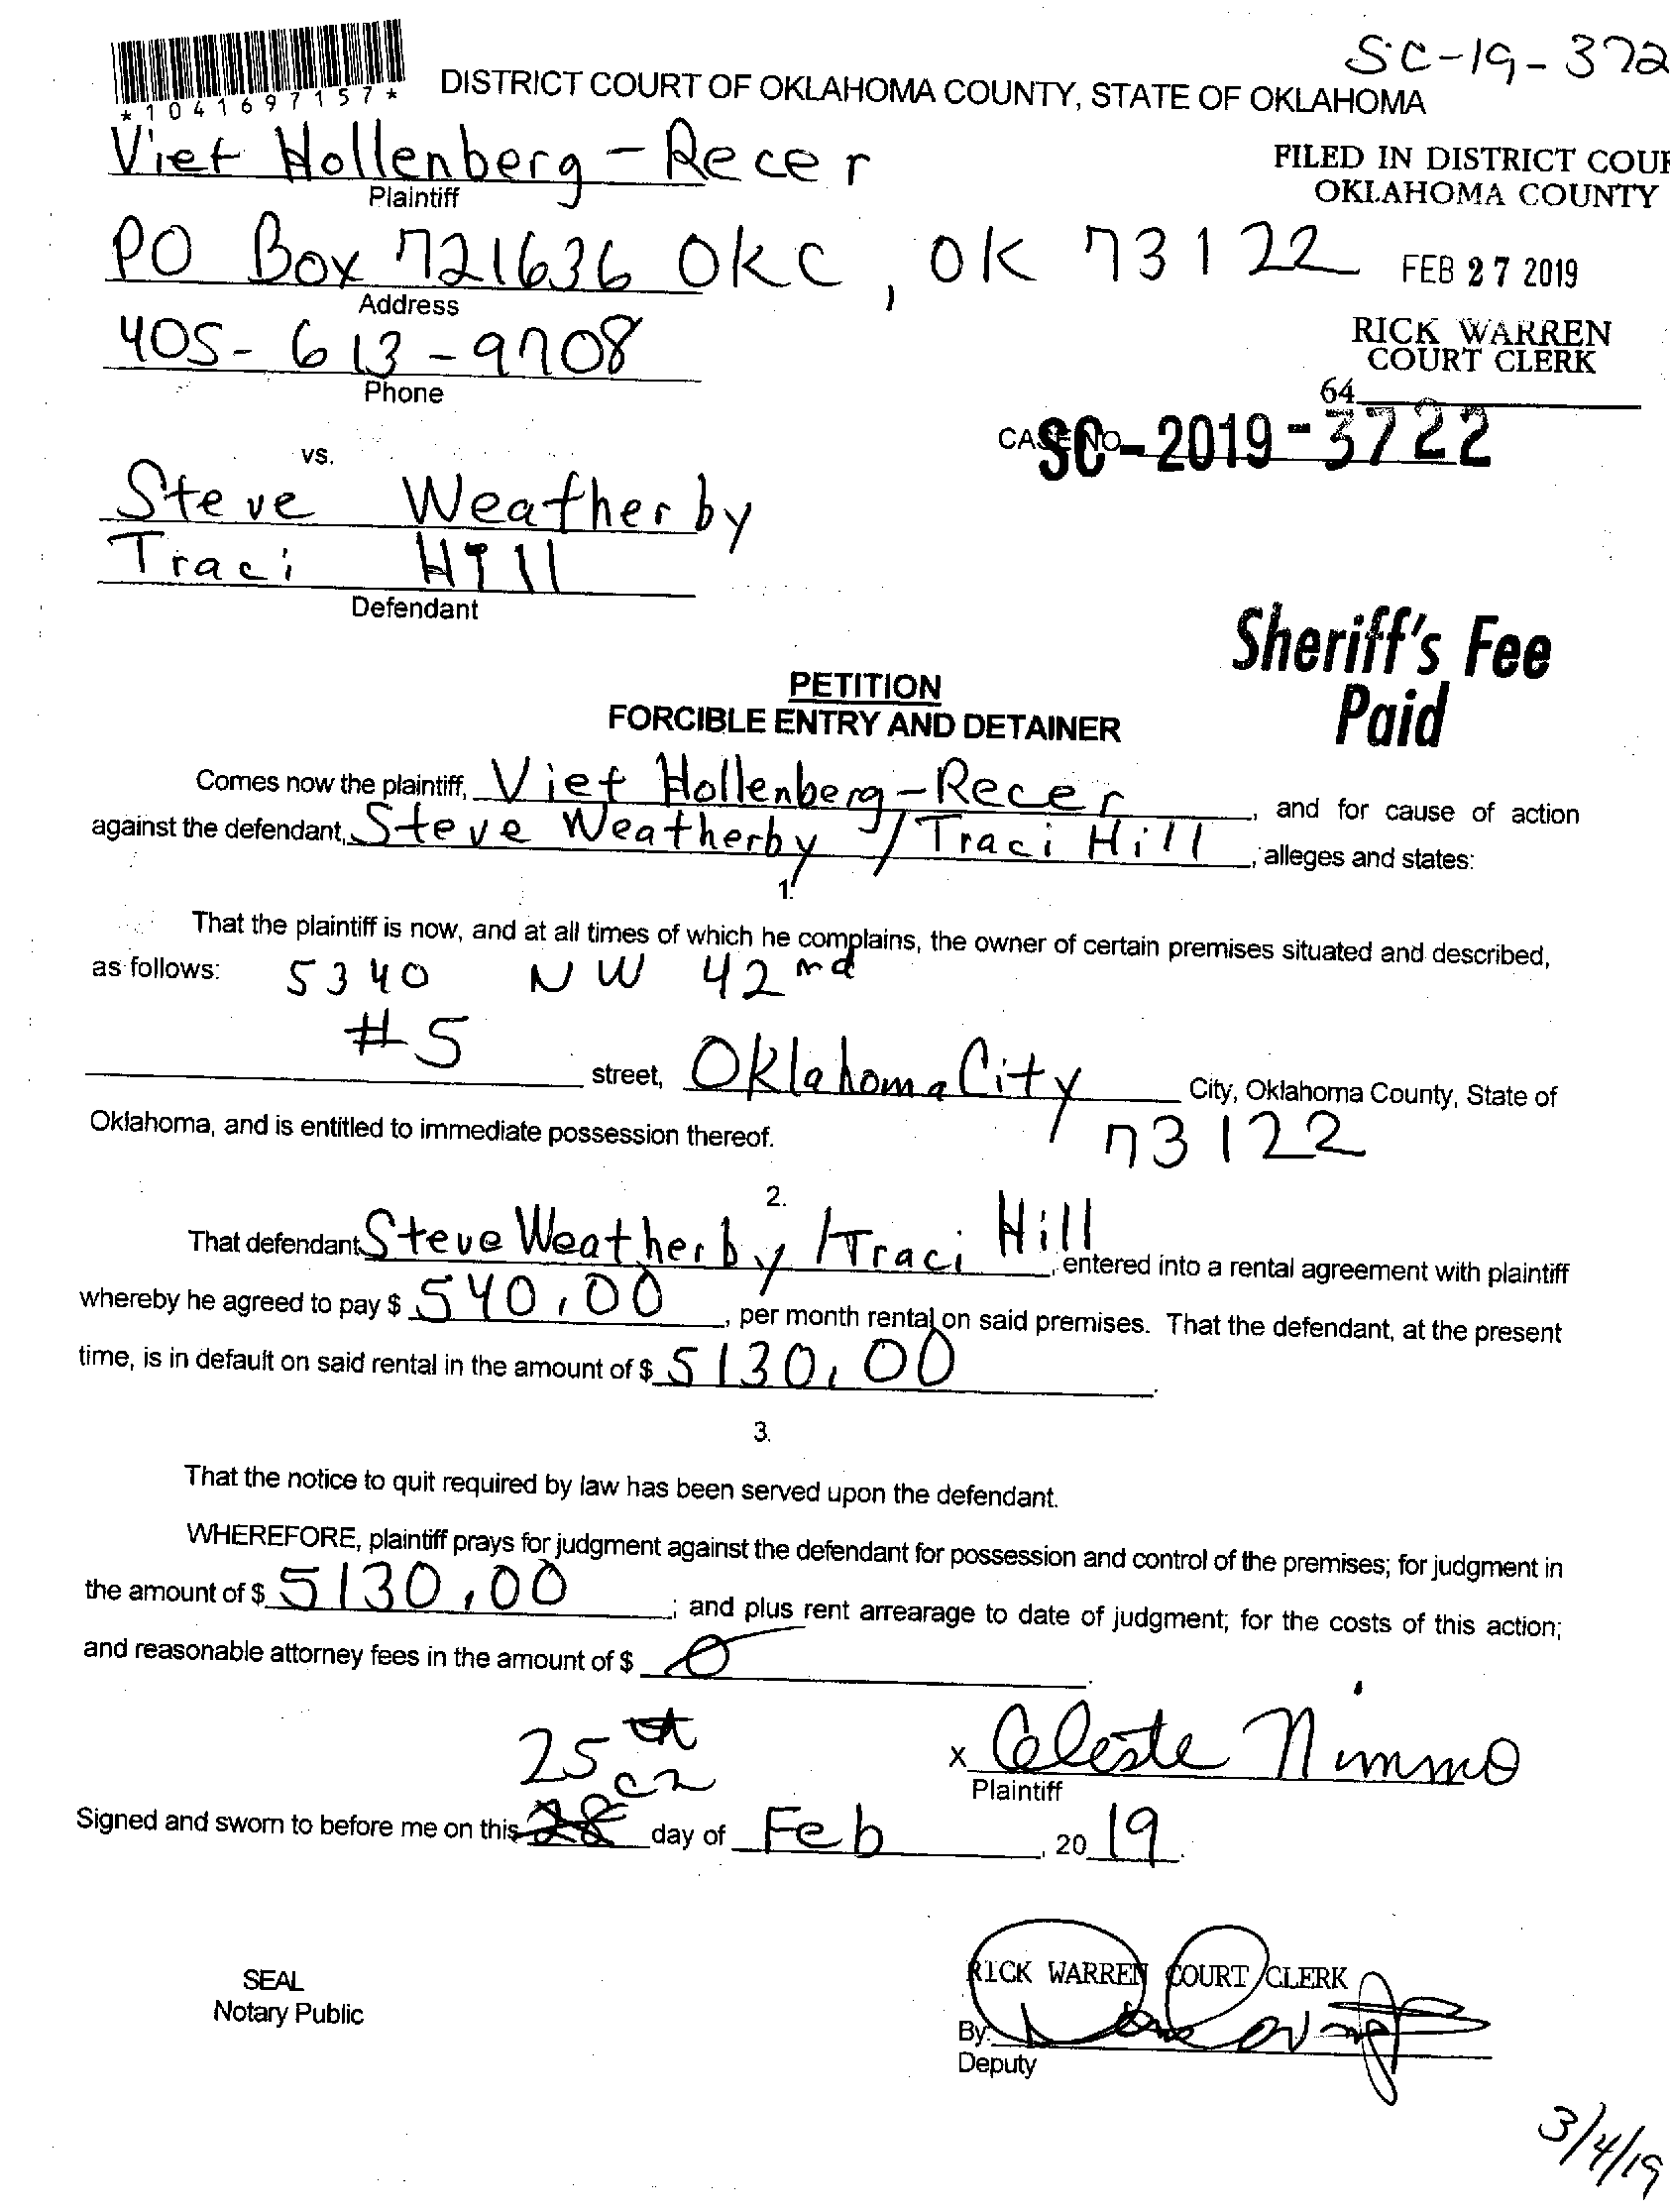 SC-19-372
*1041697157*
DISTRICT COURT OF OKLAHOMA COUNTY, STATE OF OKLAHOMA
Viet Hollenberg-Recer
Plaintiff
FILED IN DISTRICT COUR
OKLAHOMA COUNTY
PO Box 721636 OKC, OK 73122
Address
FEB 27 2019
405-613-9708
Phone
RICK WARREN
COURT CLERK
64
vs.
CASE NO. SC-2019-3722
Steve Weatherby
Traci Hill
Defendant
Sheriff's Fee
Paid
PETITION
FORCIBLE ENTRY AND DETAINER
Comes now the plaintiff, Viet Hollenberg-Recer, and for cause of action
against the defendant, Steve Weatherby / Traci Hill, alleges and states:
1.
That the plaintiff is now, and at all times of which he complains, the owner of certain premises situated and described,
as follows: 5340 NW 42nd
#5 street, Oklahoma City City, Oklahoma County, State of
Oklahoma, and is entitled to immediate possession thereof. 73122
2.
That defendant Steve Weatherby / Traci Hill, entered into a rental agreement with plaintiff
whereby he agreed to pay $ 540.00, per month rental on said premises. That the defendant, at the present
time, is in default on said rental in the amount of $ 5130.00.
3.
That the notice to quit required by law has been served upon the defendant.
WHEREFORE, plaintiff prays for judgment against the defendant for possession and control of the premises; for judgment in
the amount of $ 5130.00; and plus rent arrearage to date of judgment; for the costs of this action;
and reasonable attorney fees in the amount of $ 0.
25th
x Celeste Nimmo
Plaintiff
Signed and sworn to before me on this 28 day of Feb, 2019.
SEAL
Notary Public
RICK WARREN COURT CLERK
By:
Deputy
3/4/19